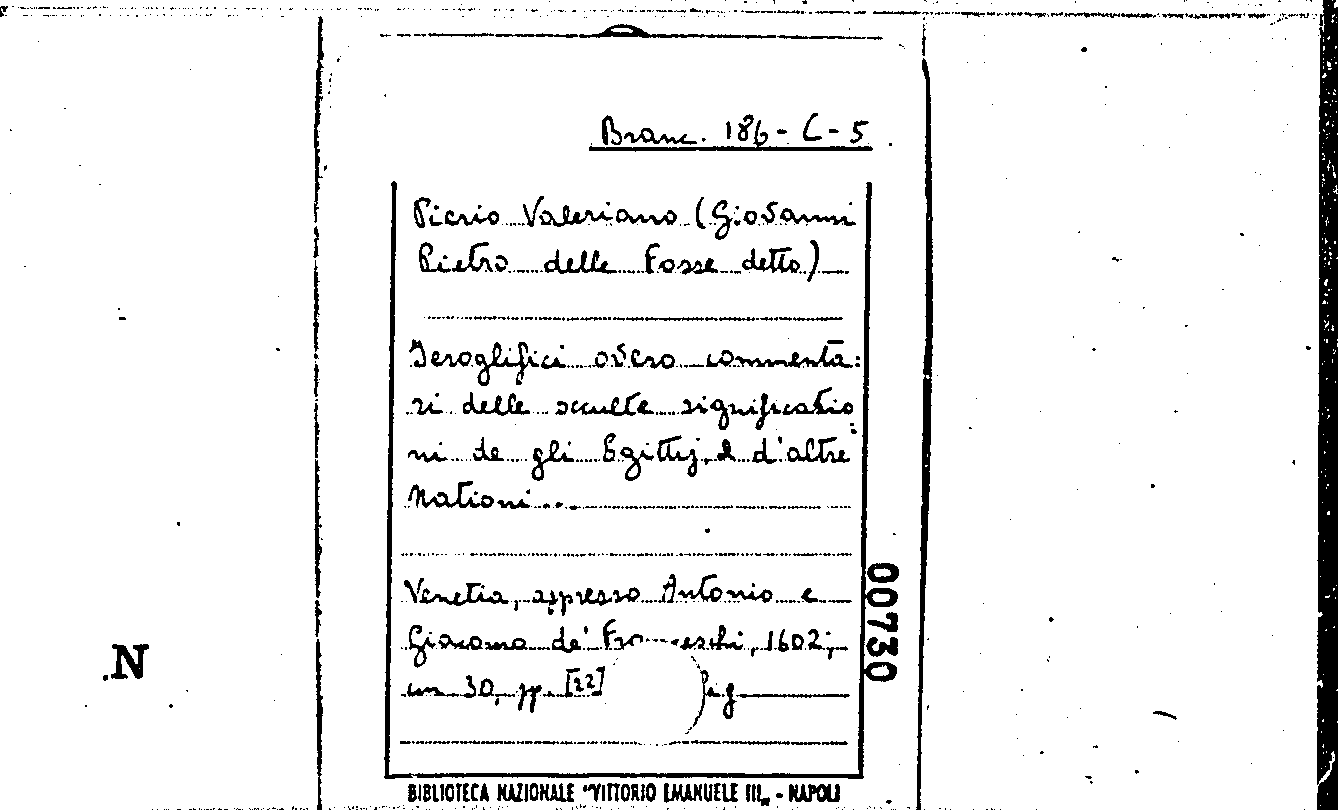 Branc. 186 - C - 5
Pierio Valeriano (Giovanni
Pietro delle Fosse detto)
Ieroglifici overo commenta:
ri delle occulte significatio
:
ni de gli Egittij, & d'altre
Nationi...
Venetia, appresso Antonio e
Giacomo de' Fra eschi, 1602;
cm 30, pp. [22] fig
00730
.N
BIBLIOTECA NAZIONALE "VITTORIO EMANUELE III„ - NAPOLI